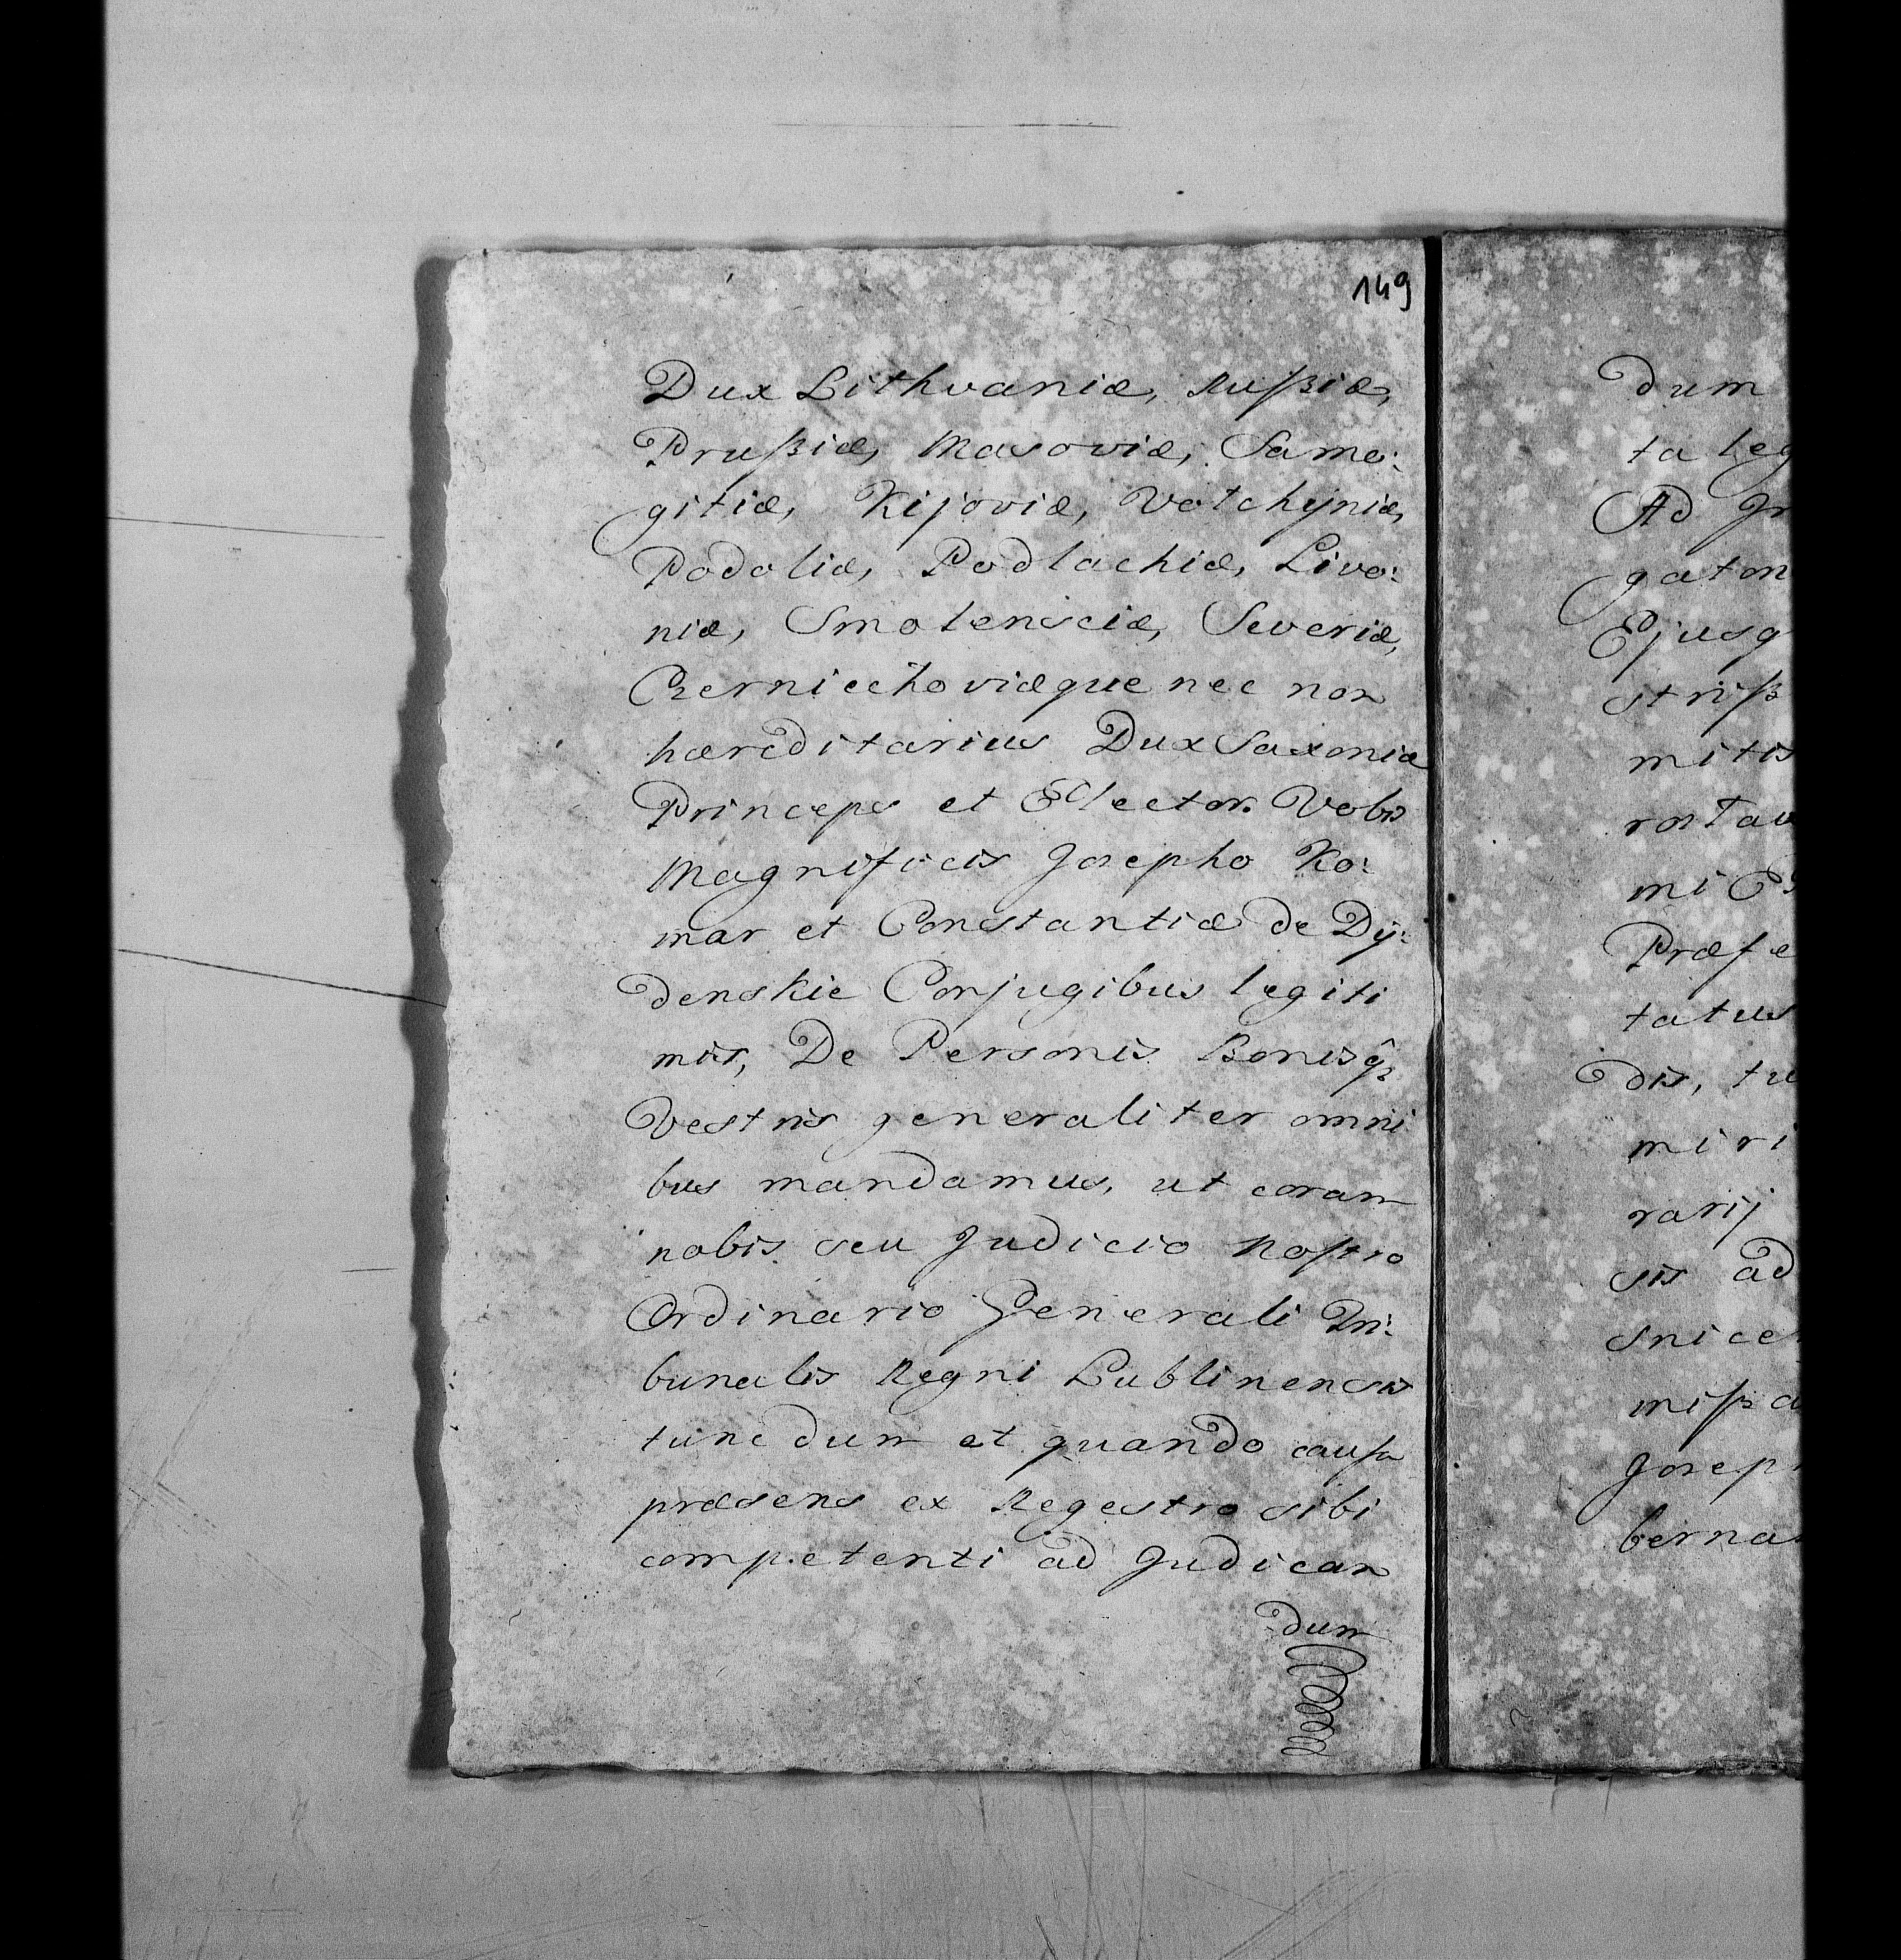 149
Dux Lithvaniæ, Rußiæ,
Prußiæ, Masoviæ, Samo:
gitiæ, Kijoviæ, Volchÿniæ,
Podoliæ, Podlachiæ, Livo:
niæ, Smolensciæ, Severiæ,
Czerniechoviæque nec non
hæreditarius Dux Saxoniæ
Princeps et Elector. Vobis
Magnificis Josepho Ko:
mar et Constantiæ de Dÿ:
denskie Conjugibus legiti
mis, De Personis Bonisq̃
Vestris generaliter omni
bus mandamus, ut coram
nobis seu Judicio Nostro
Ordinario Generali Tri:
bunalis Regni Lublinensis
tunc dum et quando causa
præsens ex Regestro sibi
competenti ad Judican
dum
dum
ta leg
Ad
gaton
Ejusq
striß
mitis
mi
Præfe
tatus
dis, tu
miri
rarij
sis ad
snice
mißa
Josep
berna